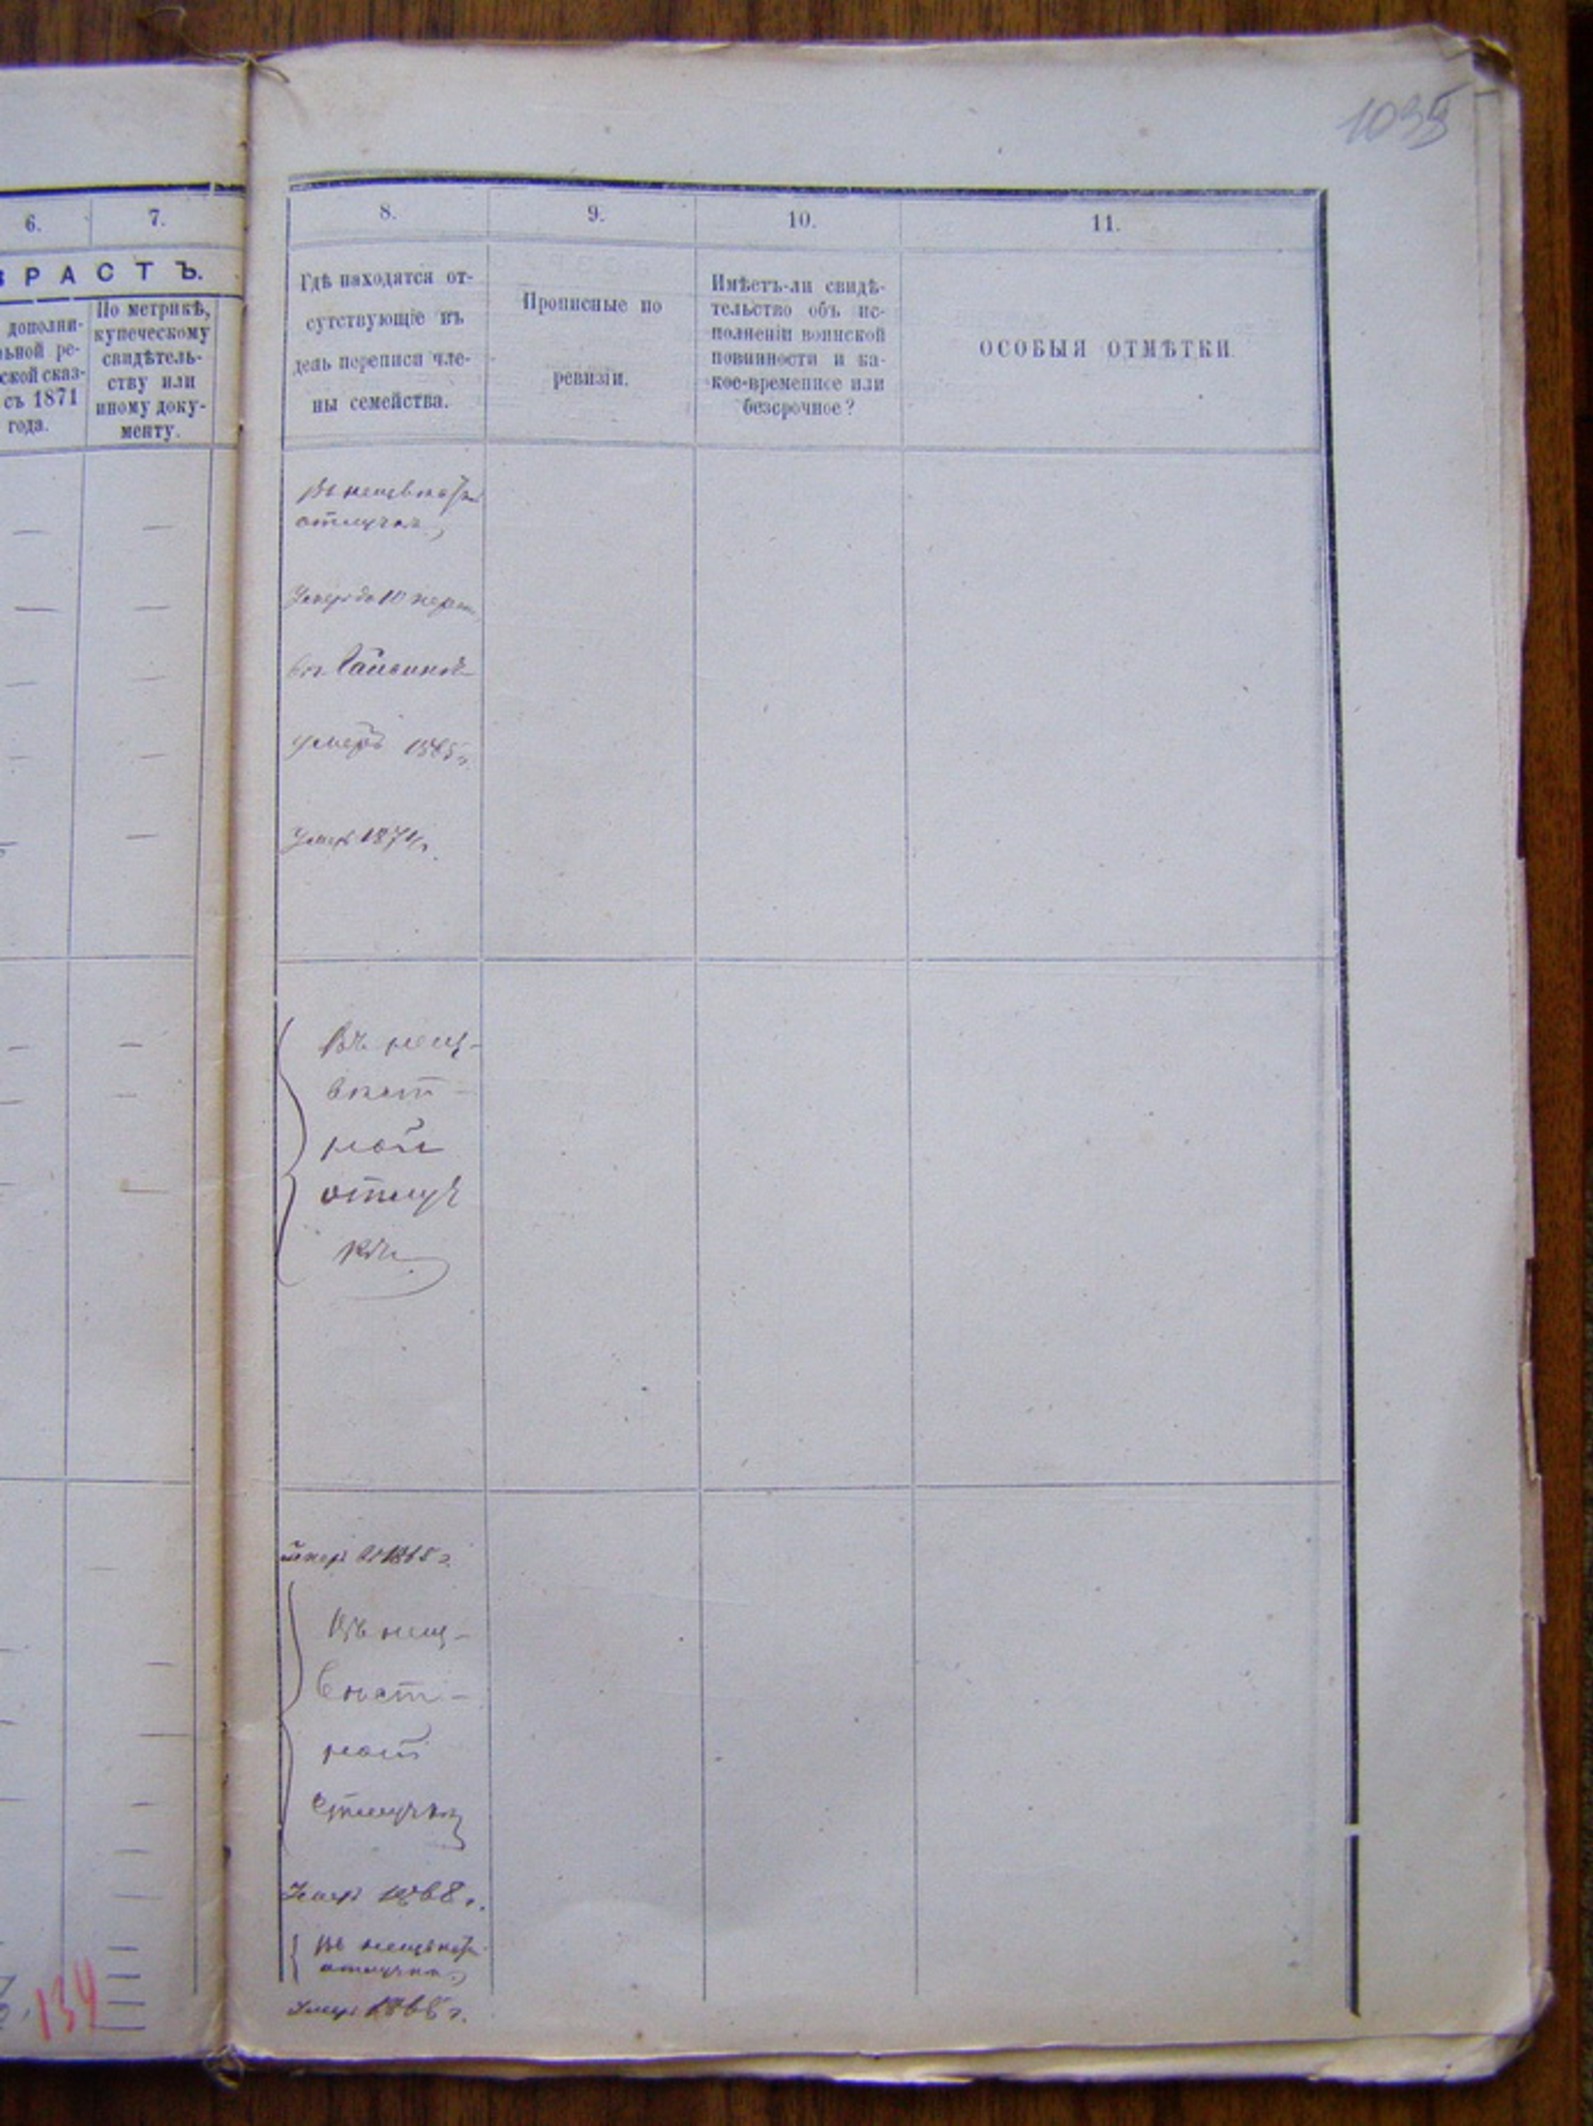 1035
6.
7.
ЗРАСТЪ.
дополни-
ьной ре-
ской сказ-
съ 1871
года.
По метрикѣ,
купеческому
свидѣтель-
ству или
иному доку-
менту.
8.
9.
10.
11.
Гдѣ находятся от-
сутствующіе въ
день переписи чле-
ны семейства.
Прописные по
ревизіи.
Имѣетъ-ли свидѣ-
тельство объ ис-
полненіи воинской
повинности и ка-
кое-временное или
безсрочное?
ОСОБЫЯ ОТМѢТКИ.
Въ
отлучкѣ
Умеръ до 10
умеръ 1865 г.
Умеръ 1871 г.
Въ неиз-
вѣст-
ной
отлуч
кѣ
Умеръ въ 1865 г.
Въ неиз-
вѣст-
ной
отлучкѣ
Умеръ 1868 г.
Въ неизвѣстн
отлучкѣ
Умеръ 1865 г.
134